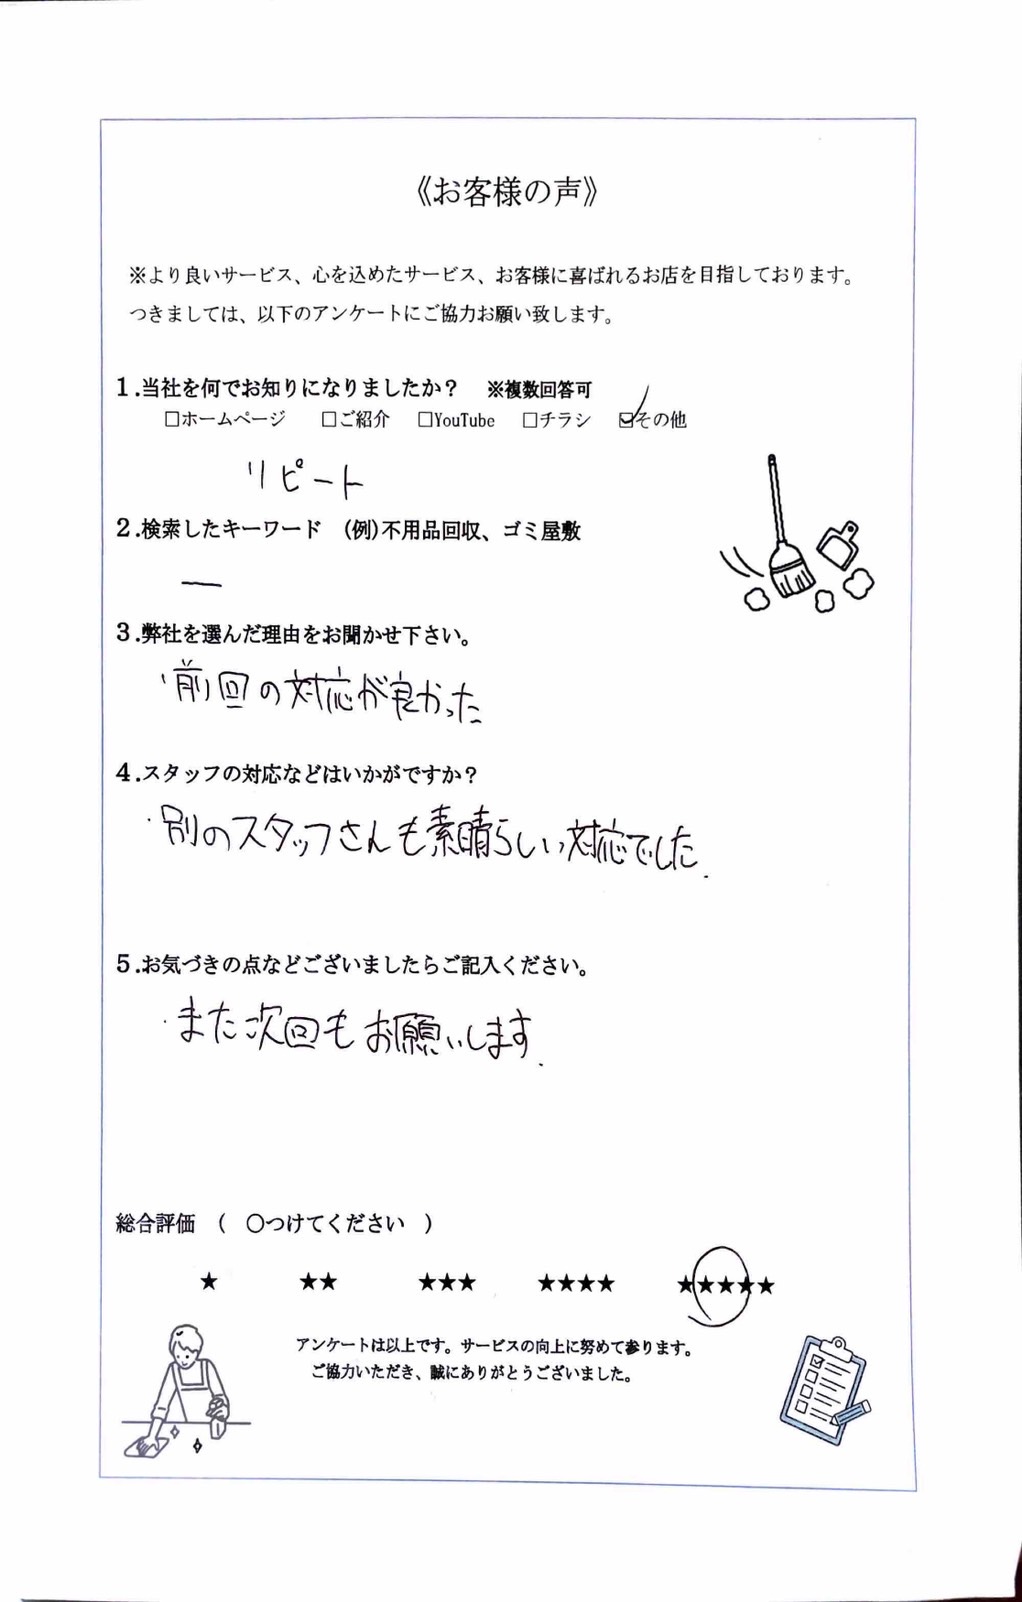 《お客様の声》
※より良いサービス、心を込めたサービス、お客様に喜ばれるお店を目指しております。
つきましては、以下のアンケートにご協力お願い致します。
1.当社を何でお知りになりましたか？ ※複数回答可
□ホームページ □ご紹介 □YouTube □チラシ ☑その他
リピート
2.検索したキーワード (例)不用品回収、ゴミ屋敷
ー
3.弊社を選んだ理由をお聞かせ下さい。
・前回の対応が良かった
4.スタッフの対応などはいかがですか？
・別のスタッフさんも素晴らしい対応でした.
5.お気づきの点などございましたらご記入ください。
・また次回もお願いします.
総合評価 ( ○つけてください )
★ ★★ ★★★ ★★★★ ★★★★★
アンケートは以上です。サービスの向上に努めて参ります。
ご協力いただき、誠にありがとうございました。